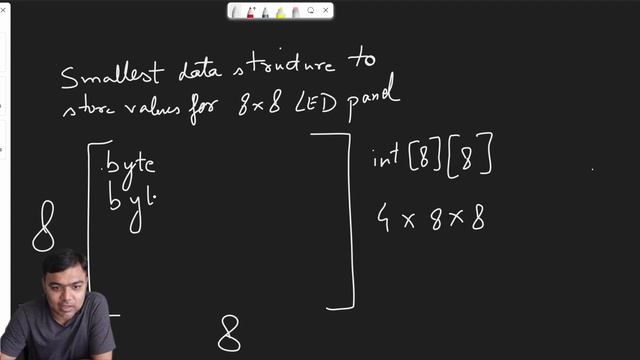 Smallest data structure to
store values for 8x8 LED panel
byte
byt
8
8
int [8][8]
4 x 8 x 8